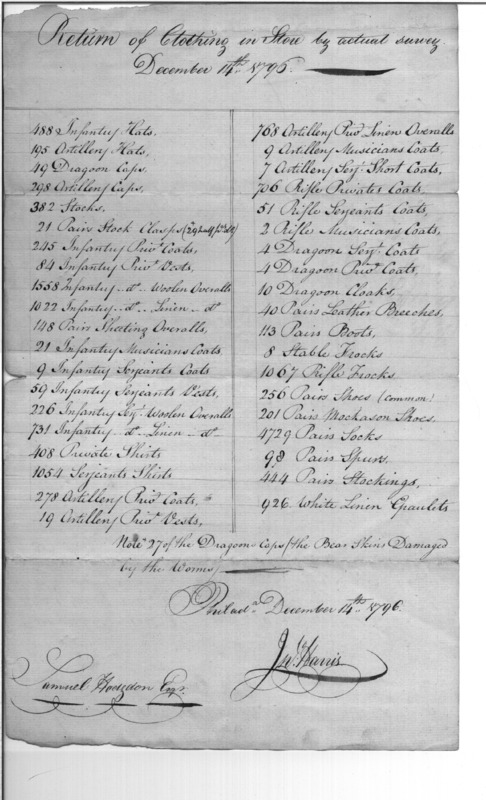 Return of Clothing in Store by actual survey
December 14th. 1796.
488 Infantry Hats,
195 Artillery Hats,
49 Dragoon Caps,
298 Artillery Caps,
382 Stocks,
21 Pairs Stock Clasps
245 Infantry Privs. Coats,
84 Infantry Privs. Vests,
1558 Infantry -do- Woolen Overalls
1022 Infantry -do- Linen -do-
148 Pair Sheeting Overalls,
21 Infantry Musicians Coats
9 Infantry Serjeants Coats
59 Infantry Serjeants Vests,
226 Infantry Serjt. Woolen Overalls
731 Infantry -do- Linen -do-
408 Private Shirts
1054 Serjeants Shirts
278 Artillery Privs. Coats,
19 Artillery Privs. Vests,
768 Artillery Privs. Linen Overalls
9 Artillery Musicians Coats,
7 Artillery Serjt. Short Coats,
706 Rifle Privates Coats
51 Rifle Serjeants Coats,
2 Rifle Musicians Coats,
4 Dragoon Serjt. Coats
4 Dragoon Privs. Coats,
10 Dragoon Cloaks,
40 Pairs Leather Breeches,
113 Pairs Boots,
8 Stable Frocks
1067 Rifle Frocks
256 Pairs Shoes (common)
201 Pairs Mockason Shoes
4729 Pairs Socks
98 Pairs Spurs
444 Pairs Stockings,
926 White Linen Gaulets
Note 27 of the Dragoons Caps (the Bear Skins Damaged
by the Worms)
Philada. December 14th. 1796.
Jno. Harris
Samuel Hodgdon Esqr.